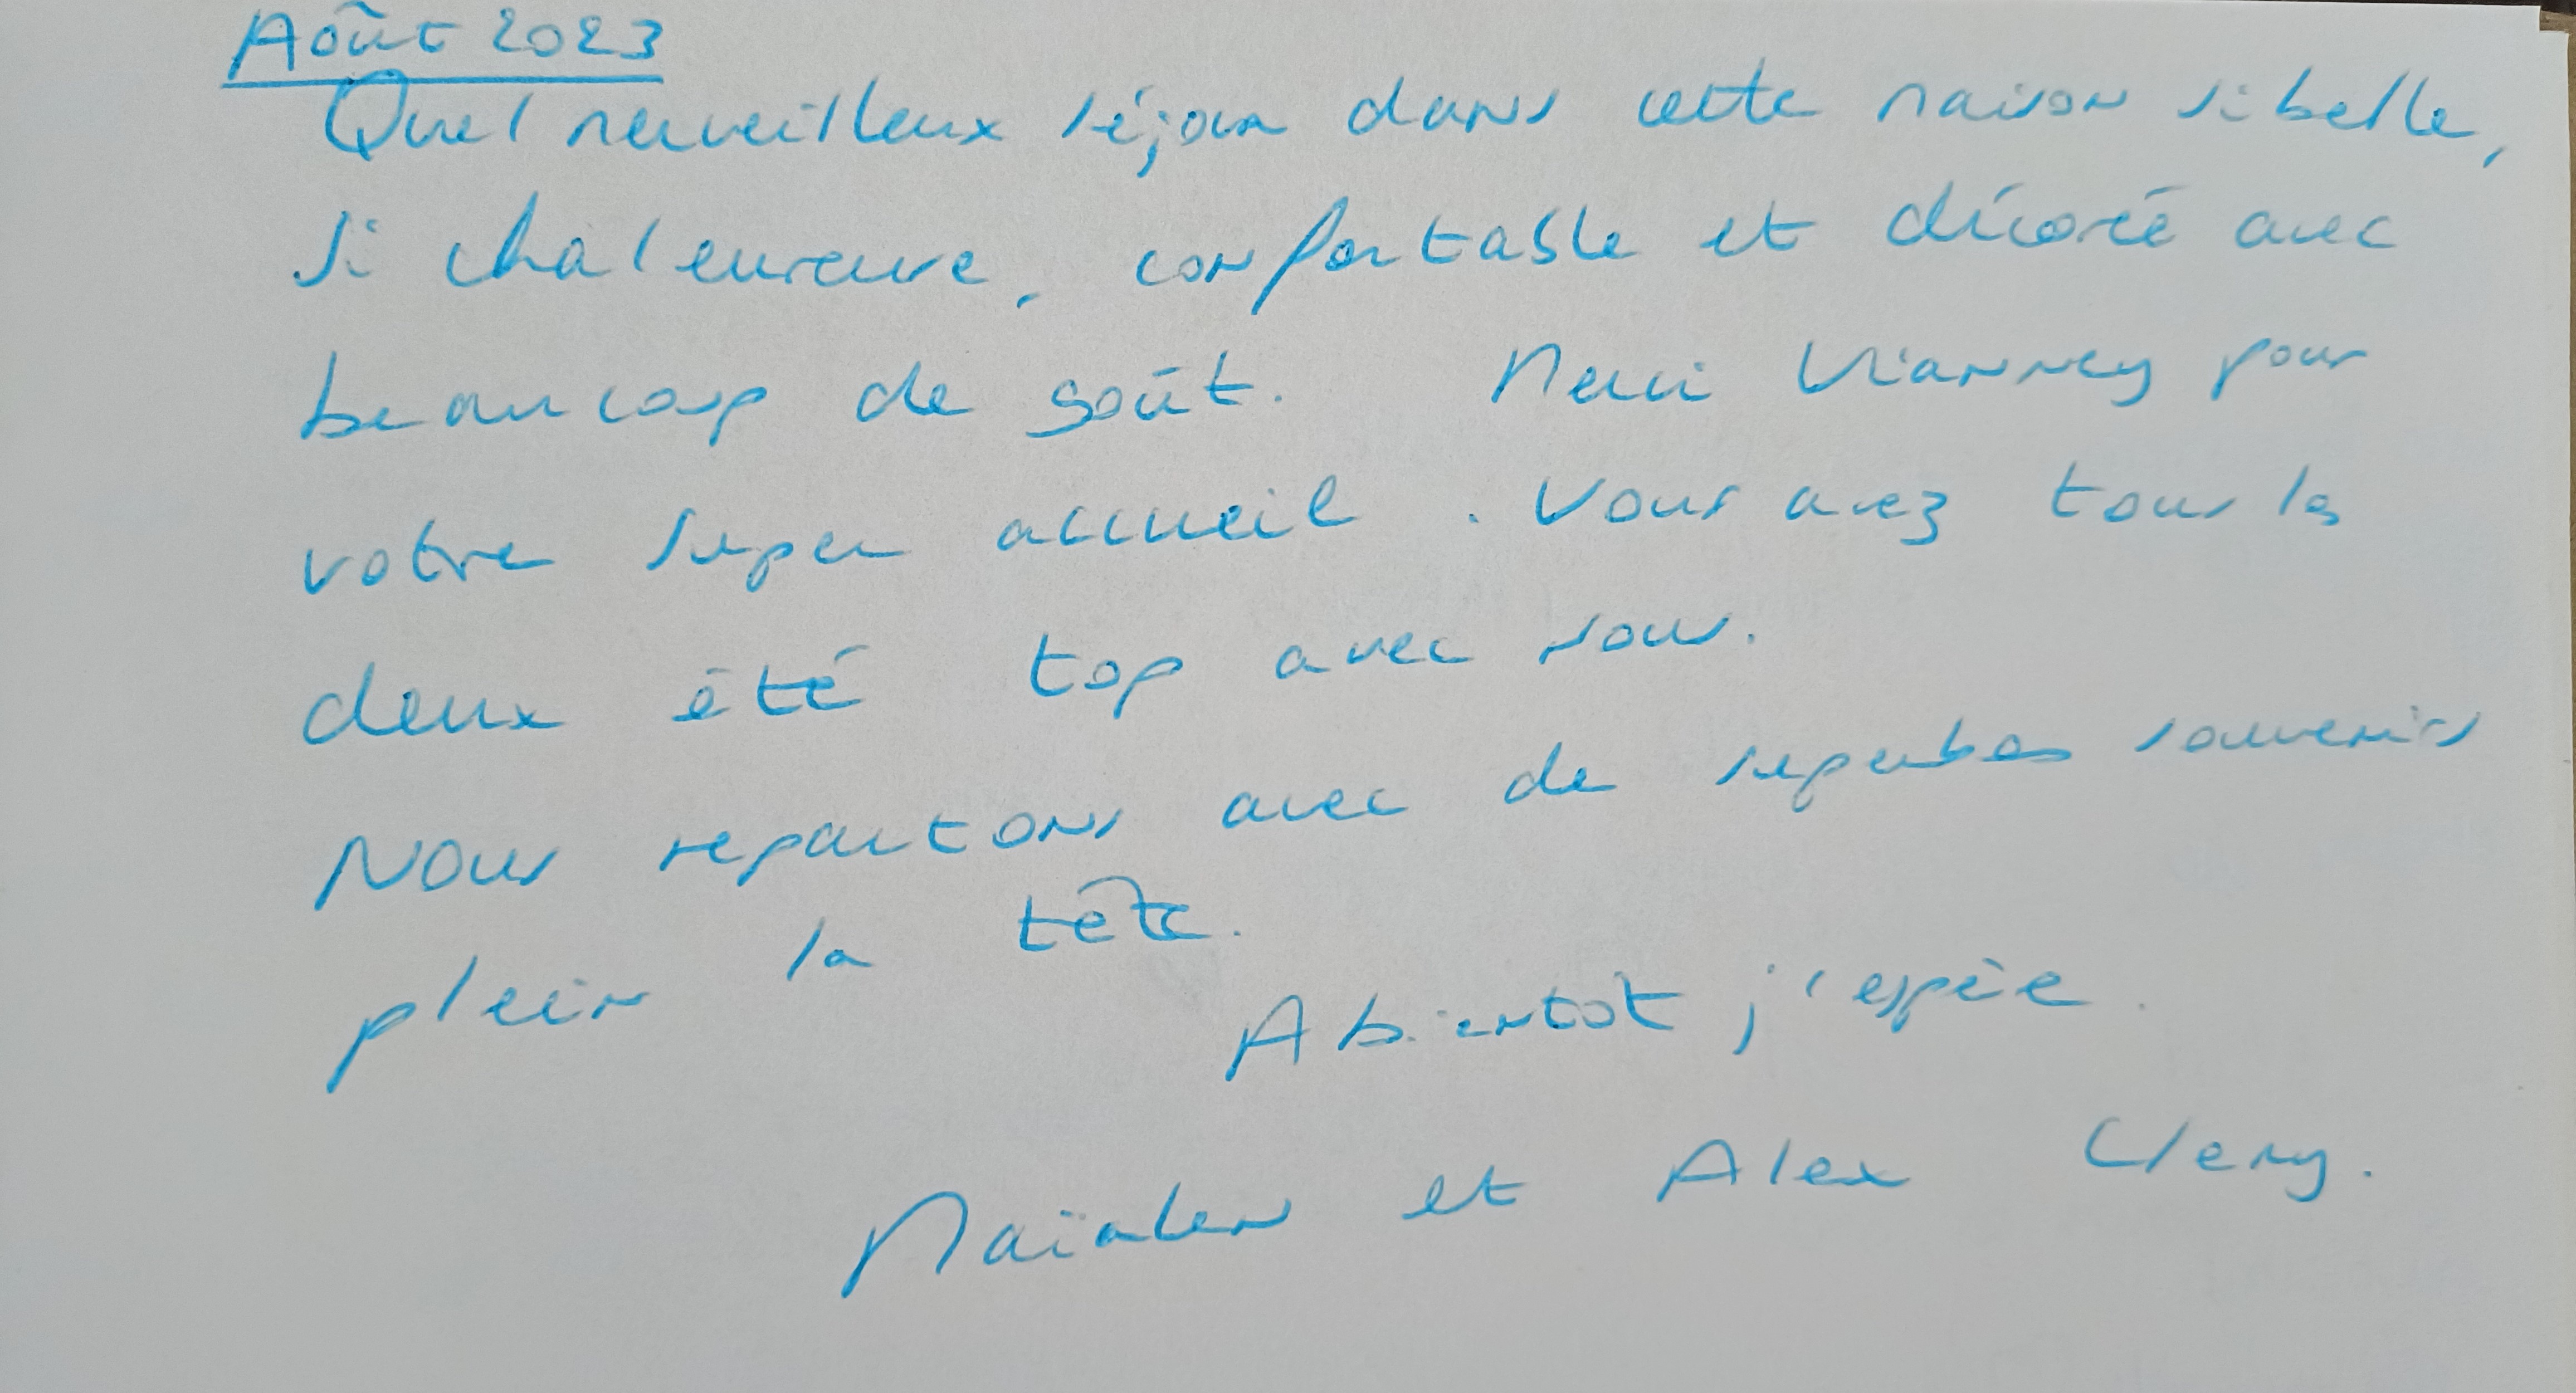 Août 2023
Quel merveilleux séjour dans cette maison si belle,
si chaleureuse, confortable et décoré avec
beaucoup de goût. Merci Vianney pour
votre super accueil. Vous avez tous les
deux été top avec nous.
Nous repartons avec de superbes souvenirs
plein la tête.
A bientôt j'espère.
Maialen et Alex Clery.